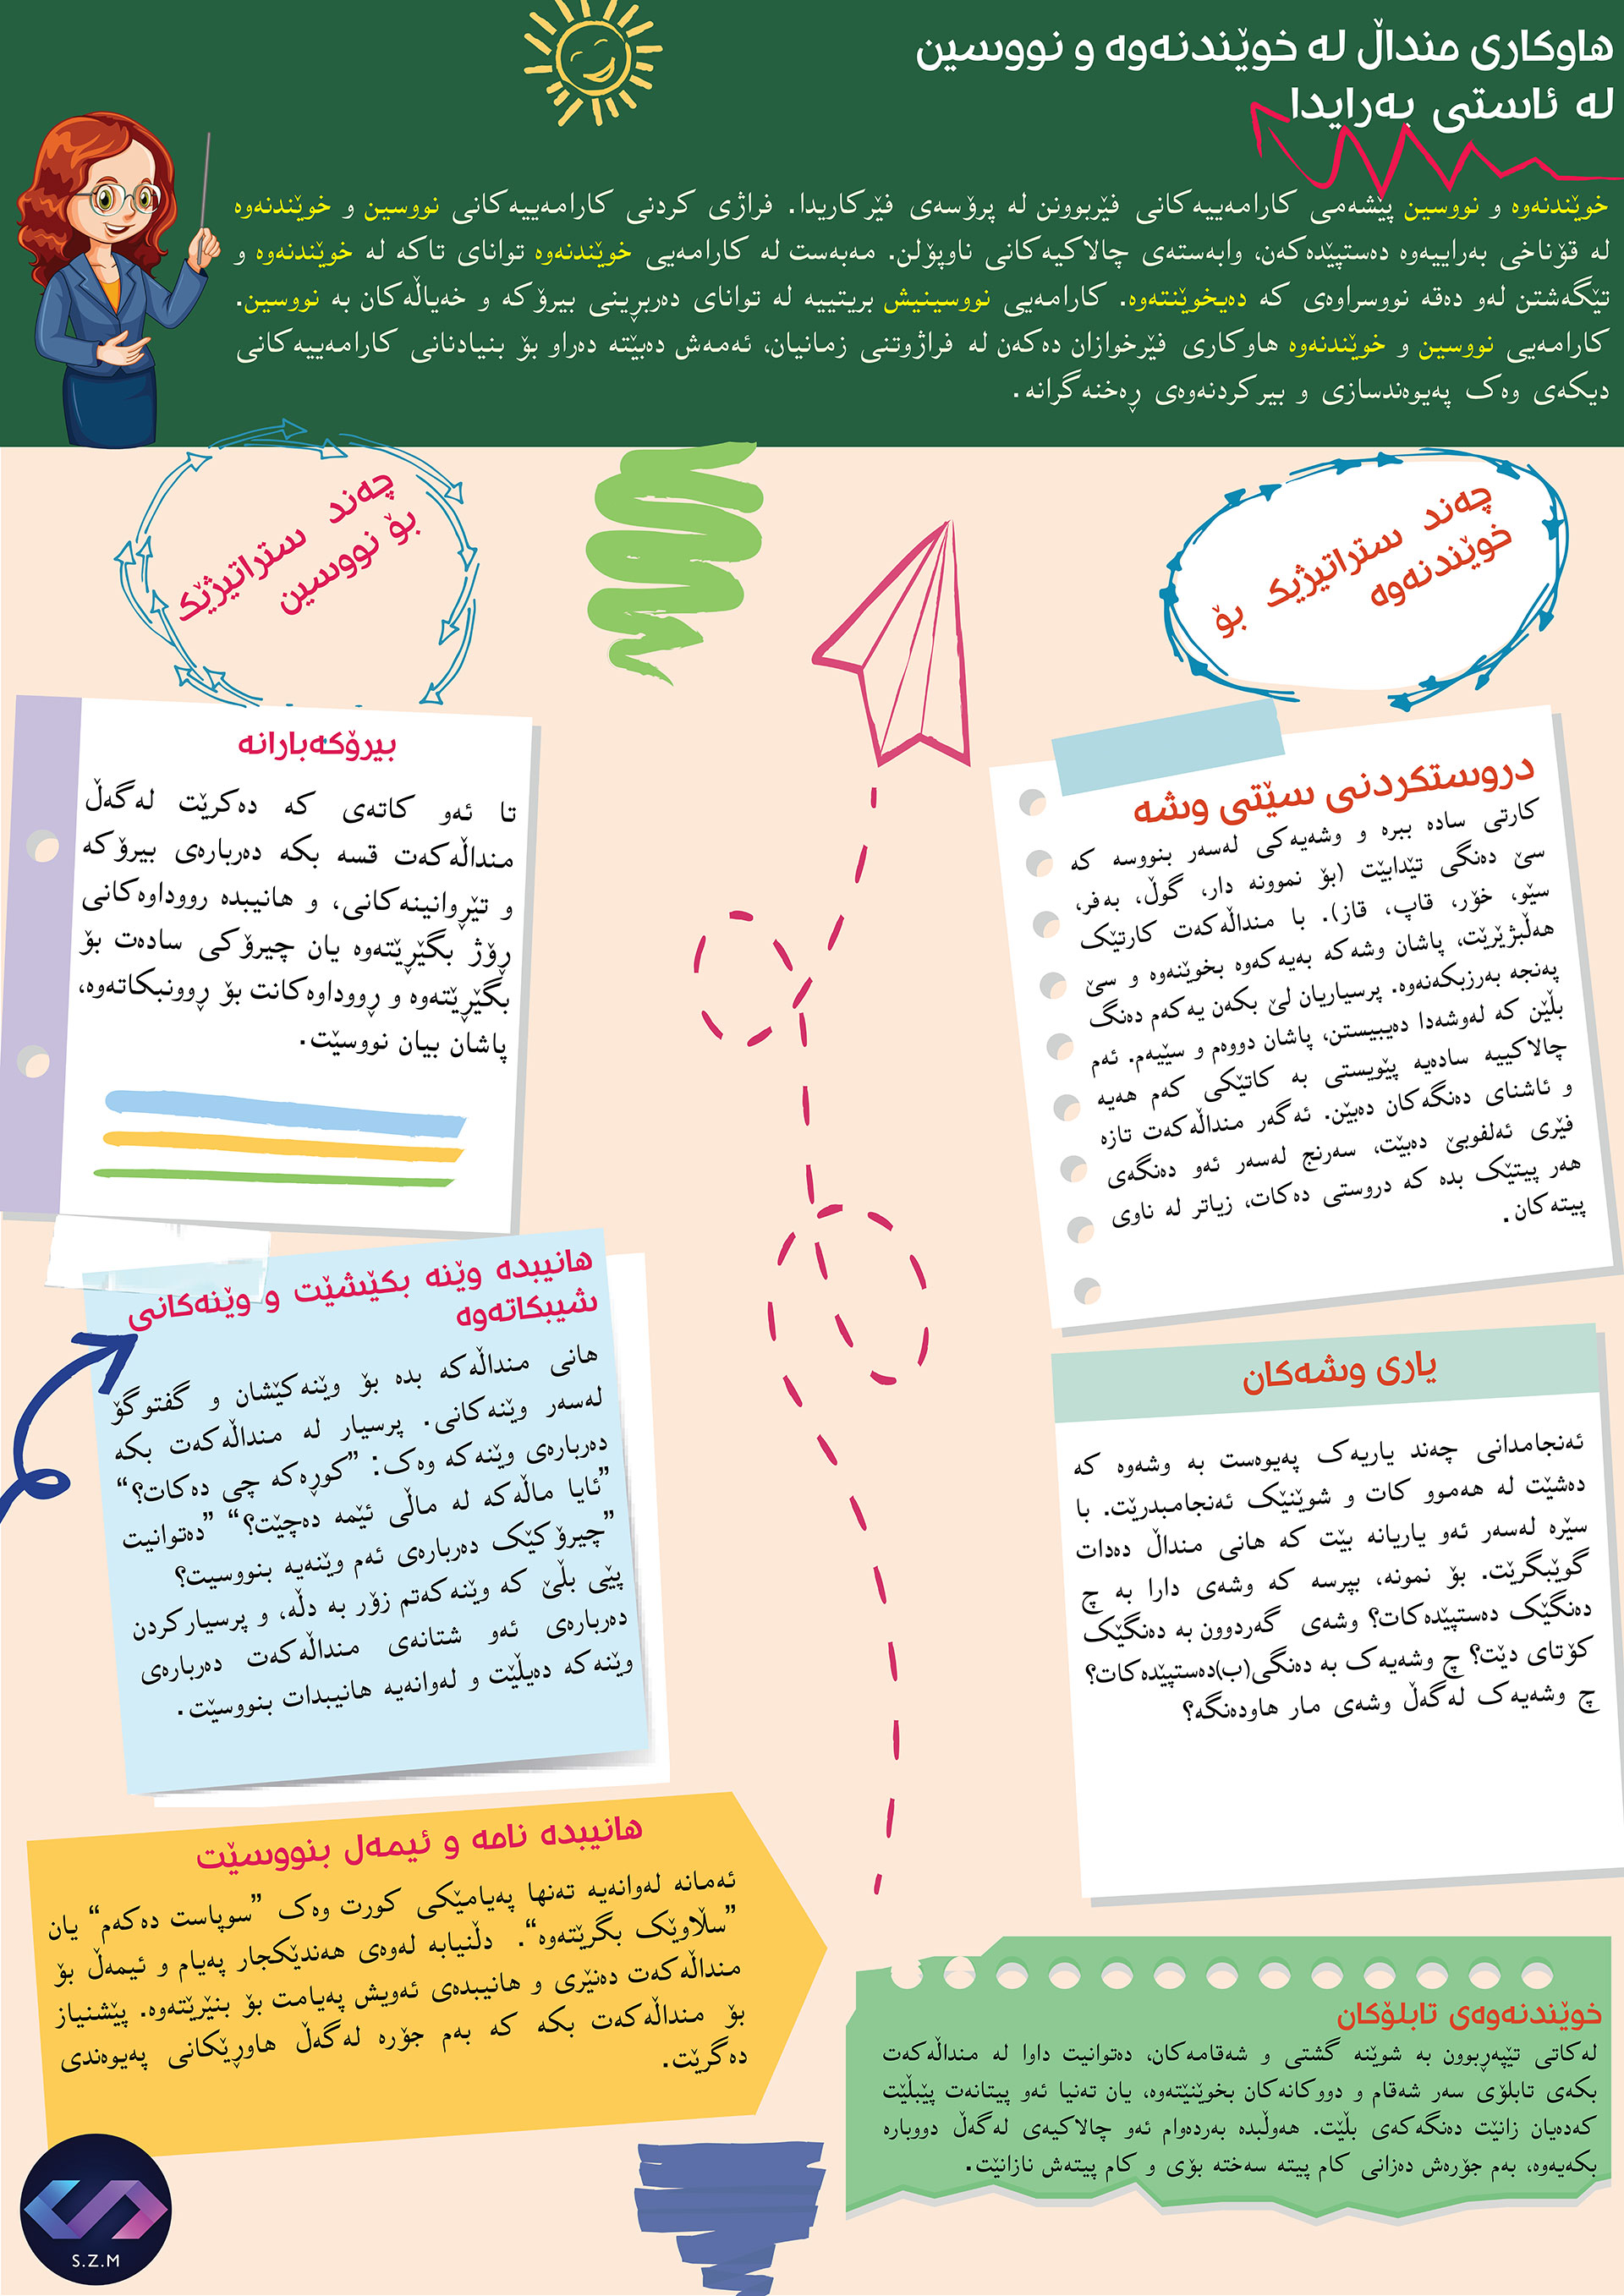 هاوکاری منداڵ لە خوێندنەوە و نووسین
لە ئاستی بەرایدا
خوێندنەوە و نووسین پێشەمی کارامەییەکانی فێربوونن لە پرۆسەی فێرکاریدا. فراژی کردنی کارامەییەکانی نووسین و خوێندنەوە
لە قۆناخی بەراییەوە دەستپێدەکەن، وابەستەی چالاکیەکانی ناوپۆلن. مەبەست لە کارامەیی خوێندنەوە توانای تاکە لە خوێندنەوە و
تێگەشتن لەو دەقە نووسراوەی کە دەیخوێنتەوە. کارامەیی نووسینیش بریتییە لە توانای دەربڕینی بیرۆکە و خەیاڵەکان بە نووسین.
کارامەیی نووسین و خوێندنەوە هاوکاری فێرخوازان دەکەن لە فراژوتنی زمانیان، ئەمەش دەبێتە دەراو بۆ بنیادنانی کارامەییەکانی
دیکەی وەک پەیوەندسازی و بیرکردنەوەی ڕەخنەگرانە.
چەند ستراتیژیک بۆ
خوێندنەوە
دروستکردنی سێتی وشە
کارتی سادە ببرە و وشەیەکی لەسەر بنووسە کە
سێ دەنگی تێدابێت (بۆ نموونە دار، گوڵ، بەفر،
سێو، خۆر، قاپ، قاز). با منداڵەکەت کارتێک
هەڵبژێرێت، پاشان وشەکە بەیەکەوە بخوێنەوە و سێ
پەنجە بەرزبکەنەوە. پرسیاریان لێ بکەن یەکەم دەنگ
بڵێن کە لەوشەدا دەیبیستن، پاشان دووەم و سێیەم. ئەم
چالاکییە سادەیە پێویستی بە کاتێکی کەم هەیە
و ئاشنای دەنگەکان دەبێن. ئەگەر منداڵەکەت تازە
فێری ئەلفوبێ دەبێت، سەرنج لەسەر ئەو دەنگەی
هەر پیتێک بدە کە دروستی دەکات، زیاتر لە ناوی
پیتەکان.
یاری وشەکان
ئەنجامدانی چەند یاریەک پەیوەست بە وشەوە کە
دەشێت لە هەموو کات و شوێنێک ئەنجامبدرێت. با
سێرە لەسەر ئەو یاریانە بێت کە هانی منداڵ دەدات
گوێبگرێت. بۆ نمونە، بپرسە کە وشەی دارا بە چ
دەنگێک دەستپێدەکات؟ وشەی گەردوون بە دەنگێک
کۆتای دێت؟ چ وشەیەک بە دەنگی(ب)دەستپێدەکات؟
چ وشەیەک لەگەڵ وشەی مار هاودەنگە؟
خوێندنەوەی تابلۆکان
لەکاتی تێپەڕبوون بە شوێنە گشتی و شەقامەکان، دەتوانیت داوا لە منداڵەکەت
بکەی تابلۆی سەر شەقام و دووکانەکان بخوێنێتەوە، یان تەنیا ئەو پیتانەت پێبڵێت
کەدەیان زانێت دەنگەکەی بڵێت. هەوڵبدە بەردەوام ئەو چالاکیەی لەگەڵ دووبارە
بکەیەوە، بەم جۆرەش دەزانی کام پیتە سەختە بۆی و کام پیتەش نازانێت.
چەند ستراتیژێک
بۆ نووسین
بیرۆکەبارانە
تا ئەو کاتەی کە دەکرێت لەگەڵ
منداڵەکەت قسە بکە دەربارەی بیرۆکە
و تێڕوانینەکانی، و هانیبدە رووداوەکانی
ڕۆژ بگێڕێتەوە یان چیرۆکی سادەت بۆ
بگێڕێتەوە و ڕووداوەکانت بۆ ڕوونبکاتەوە،
پاشان بیان نووسێت.
هانیبدە وێنە بکێشێت و وێنەکانی
شیبکاتەوە
هانی منداڵەکە بدە بۆ وێنەکێشان و گفتوگۆ
لەسەر وێنەکانی. پرسیار لە منداڵەکەت بکە
دەربارەی وێنەکە وەک: ”کوڕەکە چی دەکات؟“
”ئایا ماڵەکە لە ماڵی ئێمە دەچێت؟“ ”دەتوانیت
”چیرۆکێک دەربارەی ئەم وێنەیە بنووسیت؟
پێی بڵێ کە وێنەکەتم زۆر بە دڵە، و پرسیارکردن
دەربارەی ئەو شتانەی منداڵەکەت دەربارەی
وێنەکە دەیڵێت و لەوانەیە هانیبدات بنووسێت.
هانیبدە نامە و ئیمەل بنووسێت
ئەمانە لەوانەیە تەنها پەیامێکی کورت وەک ”سوپاست دەکەم“ یان
”سڵاوێک بگرێتەوە“. دڵنیابە لەوەی هەندێکجار پەیام و ئیمەڵ بۆ
منداڵەکەت دەنێری و هانیبدەی ئەویش پەیامت بۆ بنێرێتەوە. پێشنیاز
بۆ منداڵەکەت بکە کە بەم جۆرە لەگەڵ هاوڕێکانی پەیوەندی
دەگرێت.
S.Z.M